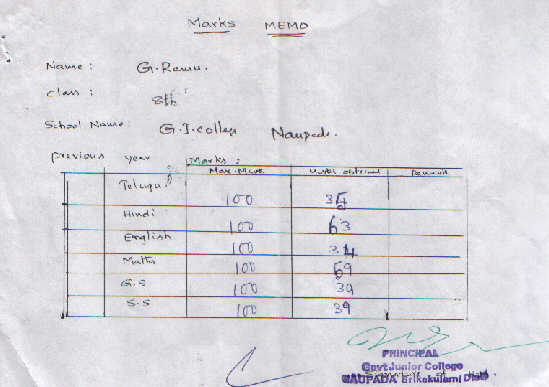 Marks MEMO
Name : G. Ramu.
Class : 8th
School Name: G.J. College Naupada.
previous year Marks :
Max. Mark Marks obtained Remark
Telugu 100 35
Hindi 100 63
English 100 34
Maths 100 69
G.S 100 39
S.S 100 39
PRINCIPAL
Govt Junior College
NAUPADA Srikakulam Dist